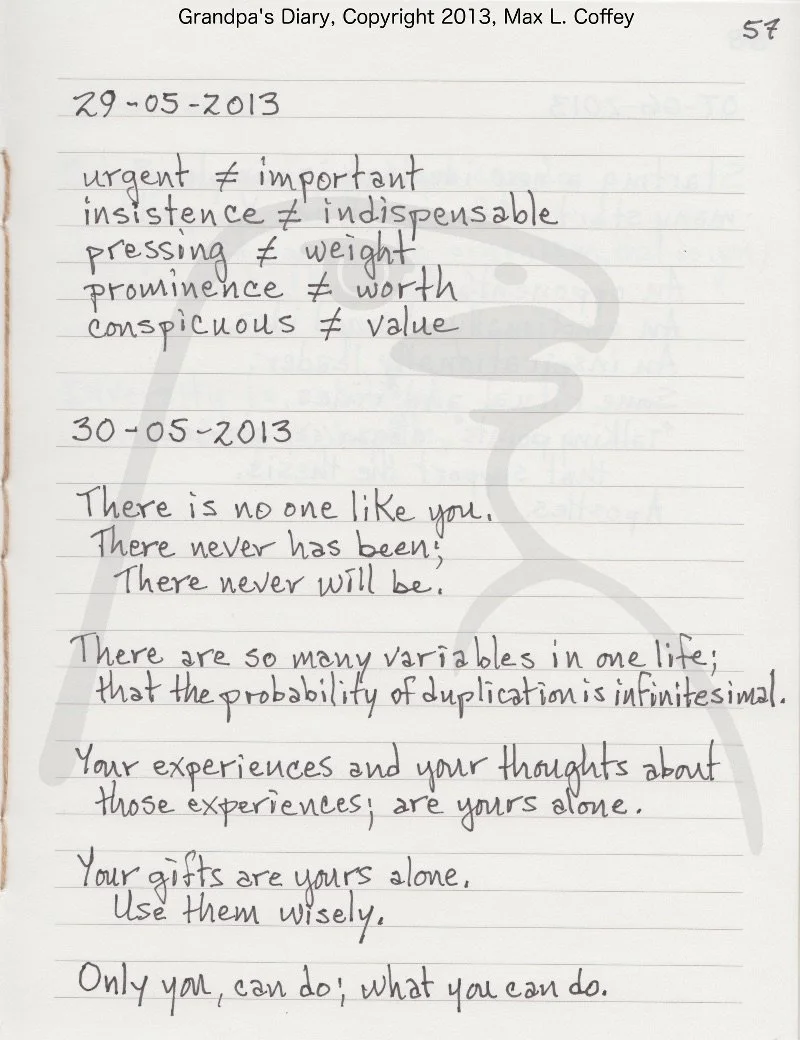 Grandpa's Diary, Copyright 2013, Max L. Coffey
57
29-05-2013
urgent ≠ important
insistence ≠ indispensable
pressing ≠ weight
prominence ≠ worth
conspicuous ≠ value
30-05-2013
There is no one like you.
There never has been;
There never will be.
There are so many variables in one life;
that the probability of duplication is infinitesimal.
Your experiences and your thoughts about
those experiences; are yours alone.
Your gifts are yours alone.
Use them wisely.
Only you, can do; what you can do.